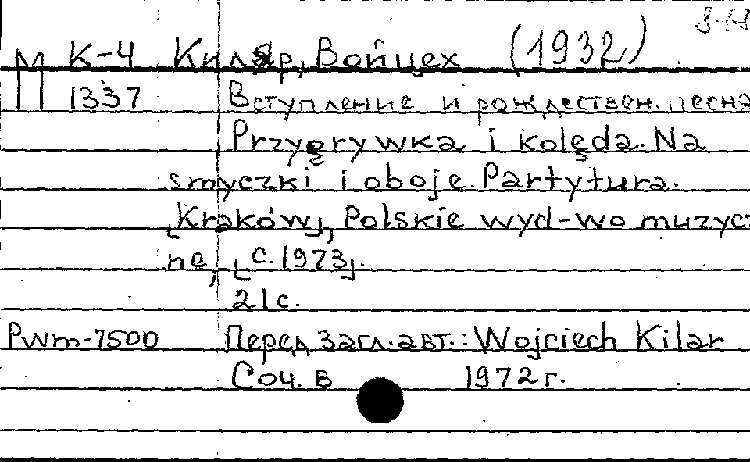 М К-4 Киляр, Войцех (1932)
1337 Вступление и рождествен. песня
Przygrywka i kolęda. Na
smyczki i oboje. Partytura.
[Kraków], Polskie wyd-wo muzycz
ne, [c. 1973].
21 с.
Pwm-7500 Перед загл. авт.: Wojciech Kilar
Соч. в 1972 г.